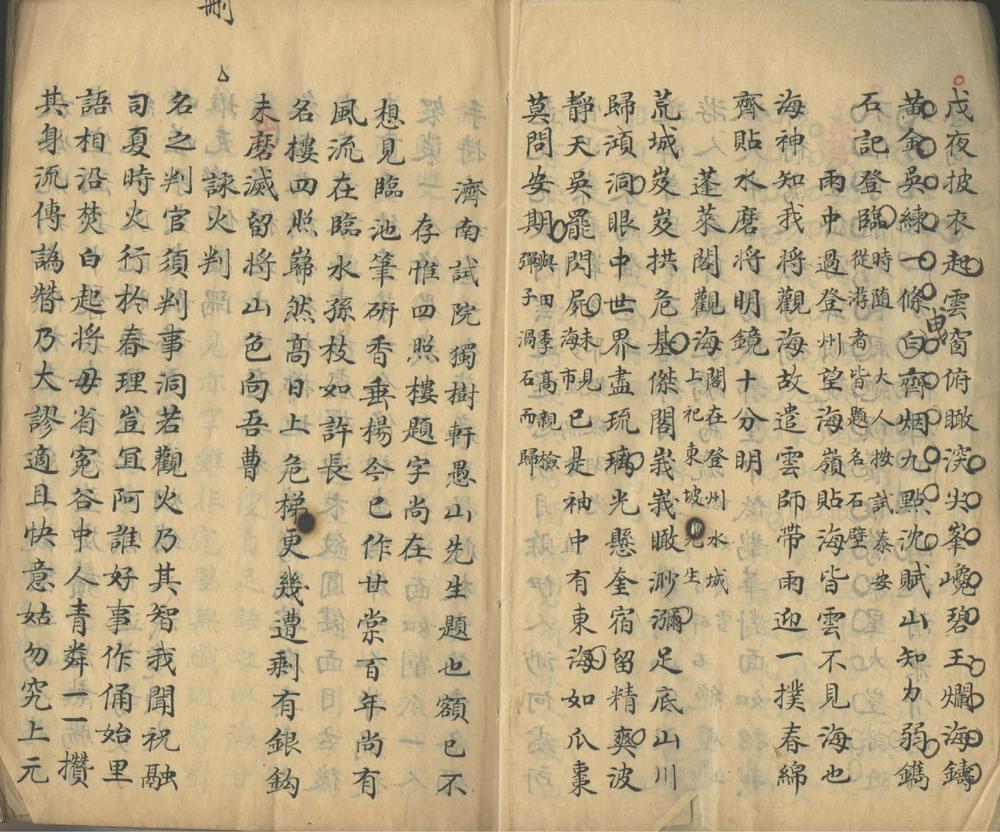 戊夜披衣起雲窗俯瞰深尖峯巉碧玉爛海鑄
黃金吳練一條白齊烟九點沈賦山知力弱鐫
石記登臨時隨大人按試泰安從游者皆題名石壁
雨中過登州望海嶺貼海皆雲不見海也
海神知我將觀海故遣雲師帶雨迎一撲春綿
齊貼水磨將明鏡十分明
蓬萊閣觀海閣在登州水城上祀東坡先生
荒城岌岌拱危基傑閣峩峩瞰渺瀰足底山川
歸澒洞眼中世界盡琉璃光懸奎宿留精爽波
靜天吳罷閃屍未見海市已是袖中有東海如瓜棗
莫問安期與田季高親檢彈子渦石而歸
濟南試院獨樹軒愚山先生題也額已不
存惟四照樓題字尚在
想見臨池筆研香垂楊今已作甘棠百年尚有
風流在臨水孫枝如許長
名樓四照巋然高日上危梯更幾遭剩有銀鈎
未磨滅留將山色向吾曹
刪
詠火判
名之判官須判事洞若觀火乃其智我聞祝融
司夏時火行於春理豈宜阿誰好事作俑始里
語相沿焚白起將毋省冤谷中人青燐一一攢
其身流傳譌朁乃大謬適且快意姑勿究上元